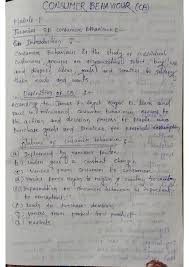 CONSUMER BEHAVIOUR (CB)
Module 1
Theories of consumer behaviour :-
Introduction :-
Consumer Behaviour is the study of individual
customers, groups or organizational select, buy, use
and dispose ideas, goods and services to satisfy
their needs and wants.
Definition of CB :-
According to James F. Engel Roger D. Black and
Paul
the actions and decision process of people who
purchase goods and services for personal consumption
Nature of consumer behaviour :-
(a) Influenced by various factors
(b) Undergoes a constant change
(c) Varies from consumer to consumer
(d) Varies from region to region
(e) on consumer behaviour is important
to marketers
(f) Leads to purchase decision
(g) Varies from product to product